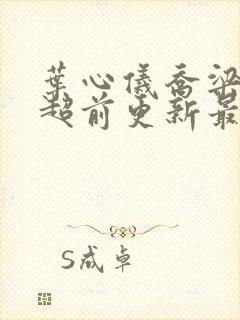 葉心儀喬梁
超前更新最
S成卓